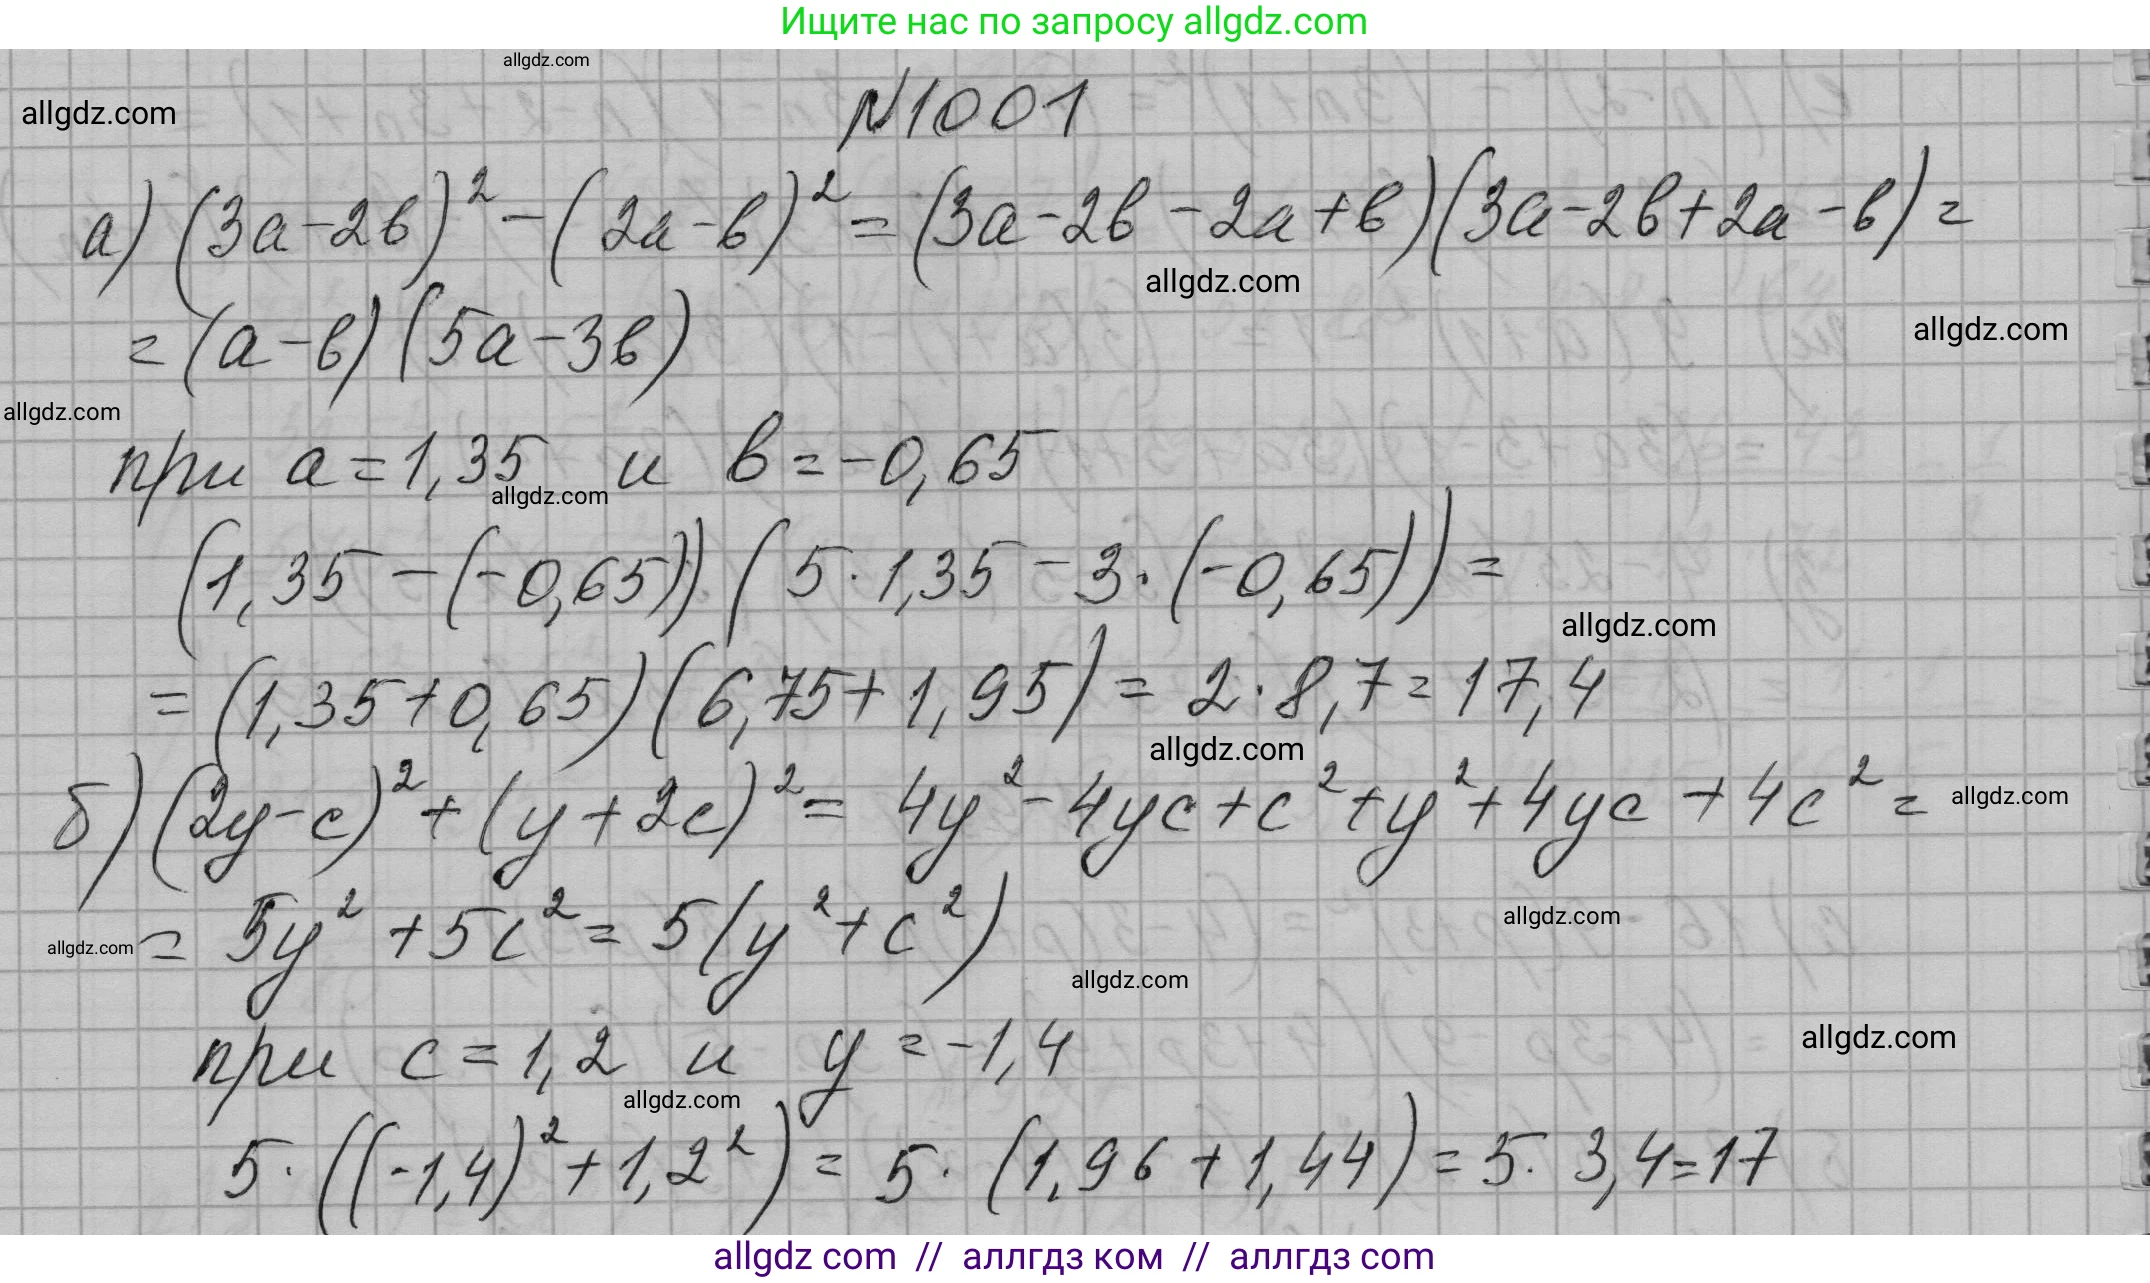 Ищите нас по запросу allgdz.com
allgdz.com
allgdz.com
N1001
а) (3a-2b)²-(2a-b)²=(3a-2b-2a+b)(3a-2b+2a-b)=
allgdz.com
=(a-b)(5a-3b)
allgdz.com
allgdz.com
при a=1,35 и b=-0,65
allgdz.com
(1,35-(-0,65))(5·1,35-3·(-0,65))=
allgdz.com
=(1,35+0,65)(6,75+1,95)=2·8,7=17,4
allgdz.com
б) (2y-c)²+(y+2c)²=4y²-4yc+c²+y²+4yc+4c²=
allgdz.com
=5y²+5c²=5(y²+c²)
allgdz.com
allgdz.com
allgdz.com
при c=1,2 и y=-1,4
allgdz.com
allgdz.com
5·((-1,4)²+1,2²)=5·(1,96+1,44)=5·3,4=17
allgdz com // аллгдз ком // аллгдз com